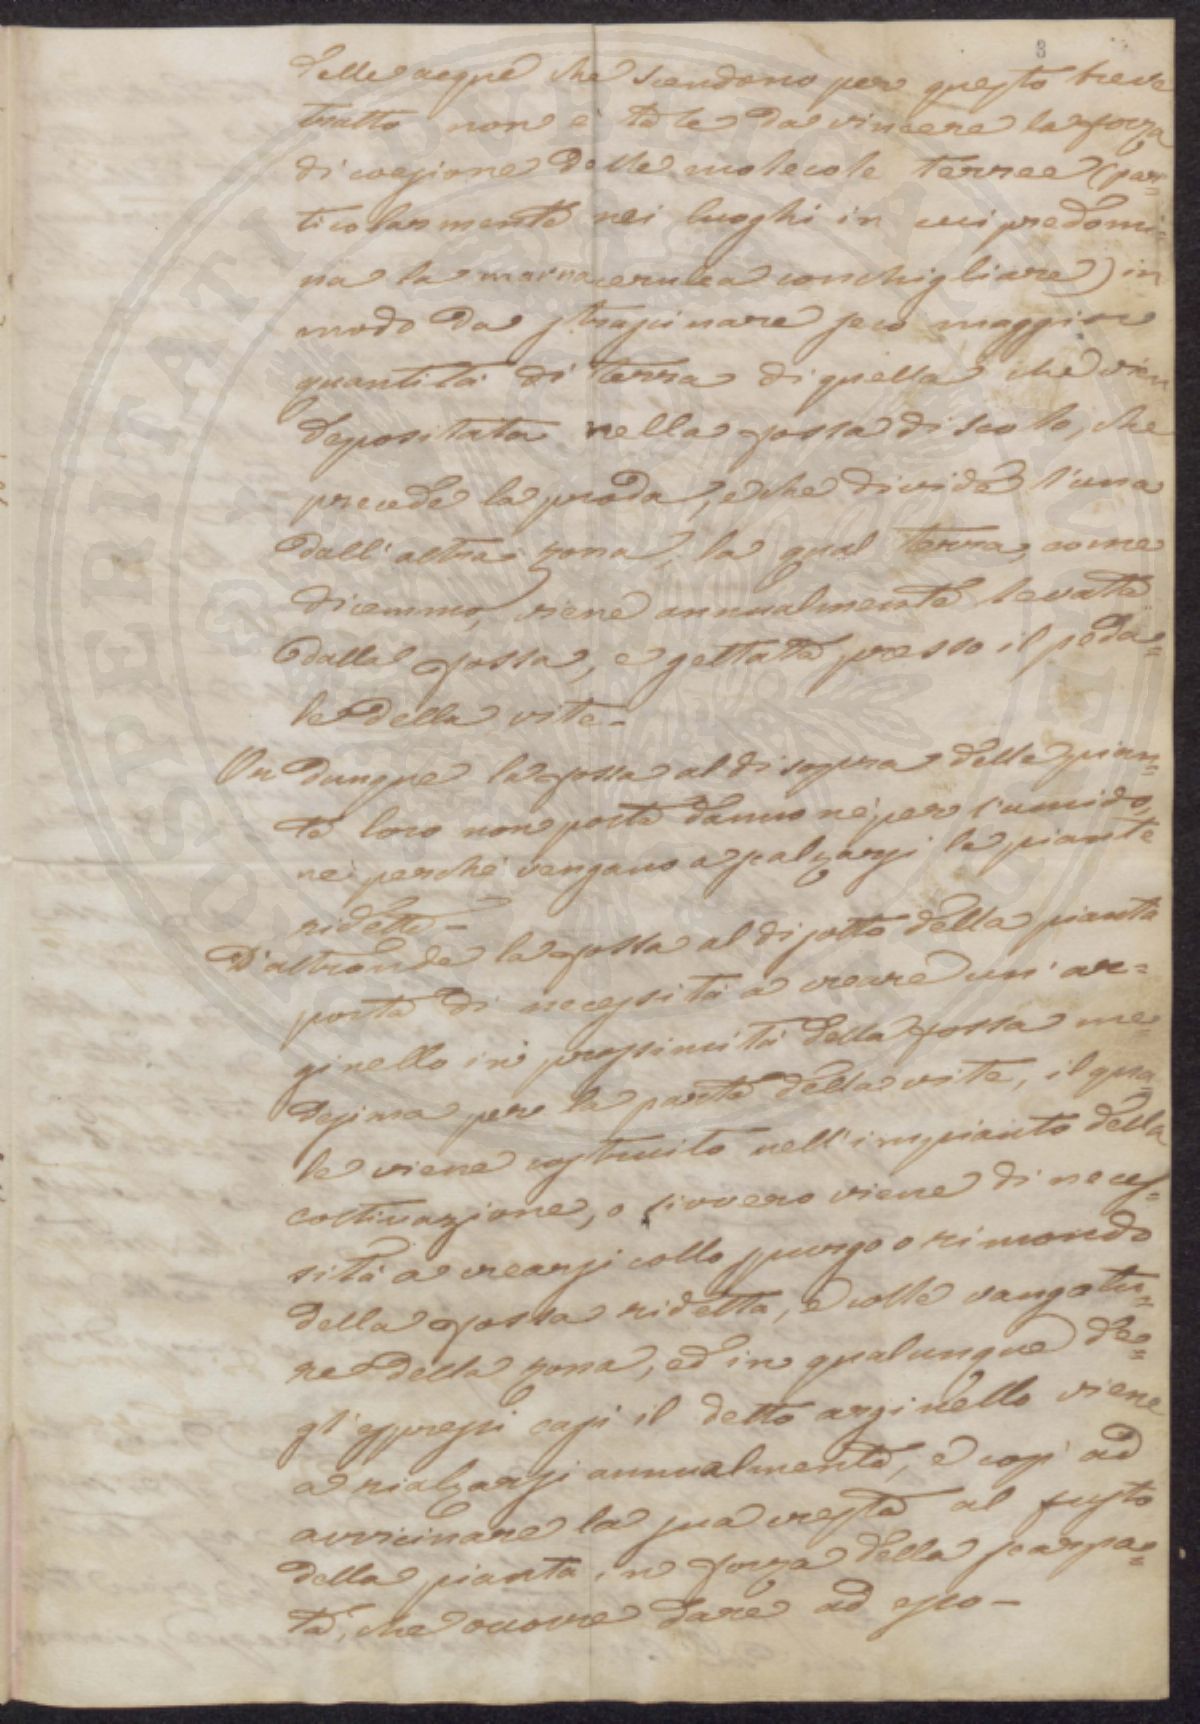 3
delle acque che scendono per questo breve
tratto non è tale da vincere la forza
di coesione delle molecole terree (par=
ticolarmente nei luoghi in cui predomi=
na la marna cerulea conchigliare) in
modo da strascinare seco maggior
quantità di terra di quella che vien
depositata nella fossa di scolo, che
precede la proda, e che divide l'una
dall'altra zona, la qual terra, come
dicemmo, viene annualmente levata
dalla fossa, e gettata presso il peda=
le della vite –
Or dunque la fossa al disopra delle pian=
te loro non porta danno nè per l'umido,
nè perchè vengano a scalzarsi le piante
ridette –
D'altronde la fossa al disotto della pianta
porta di necessità a creare un' ar=
ginello in prossimità della fossa me=
desima per la parte della vite, il qua=
le viene costruito nell'impianto della
coltivazione, o sivvero viene di neces=
sità a crearsi collo spurgo o rimondo
della fossa ridetta, e colle vangatu=
re della zona, ed in qualunque de=
gl'espressi casi il detto arginello viene
a rialzarsi annualmente, e così ad
avvicinare la sua cresta al fusto
della pianta in forza della scarpa=
ta, che occorre dare ad esso –
SPERITATI PVBLICAE AVGENDAE